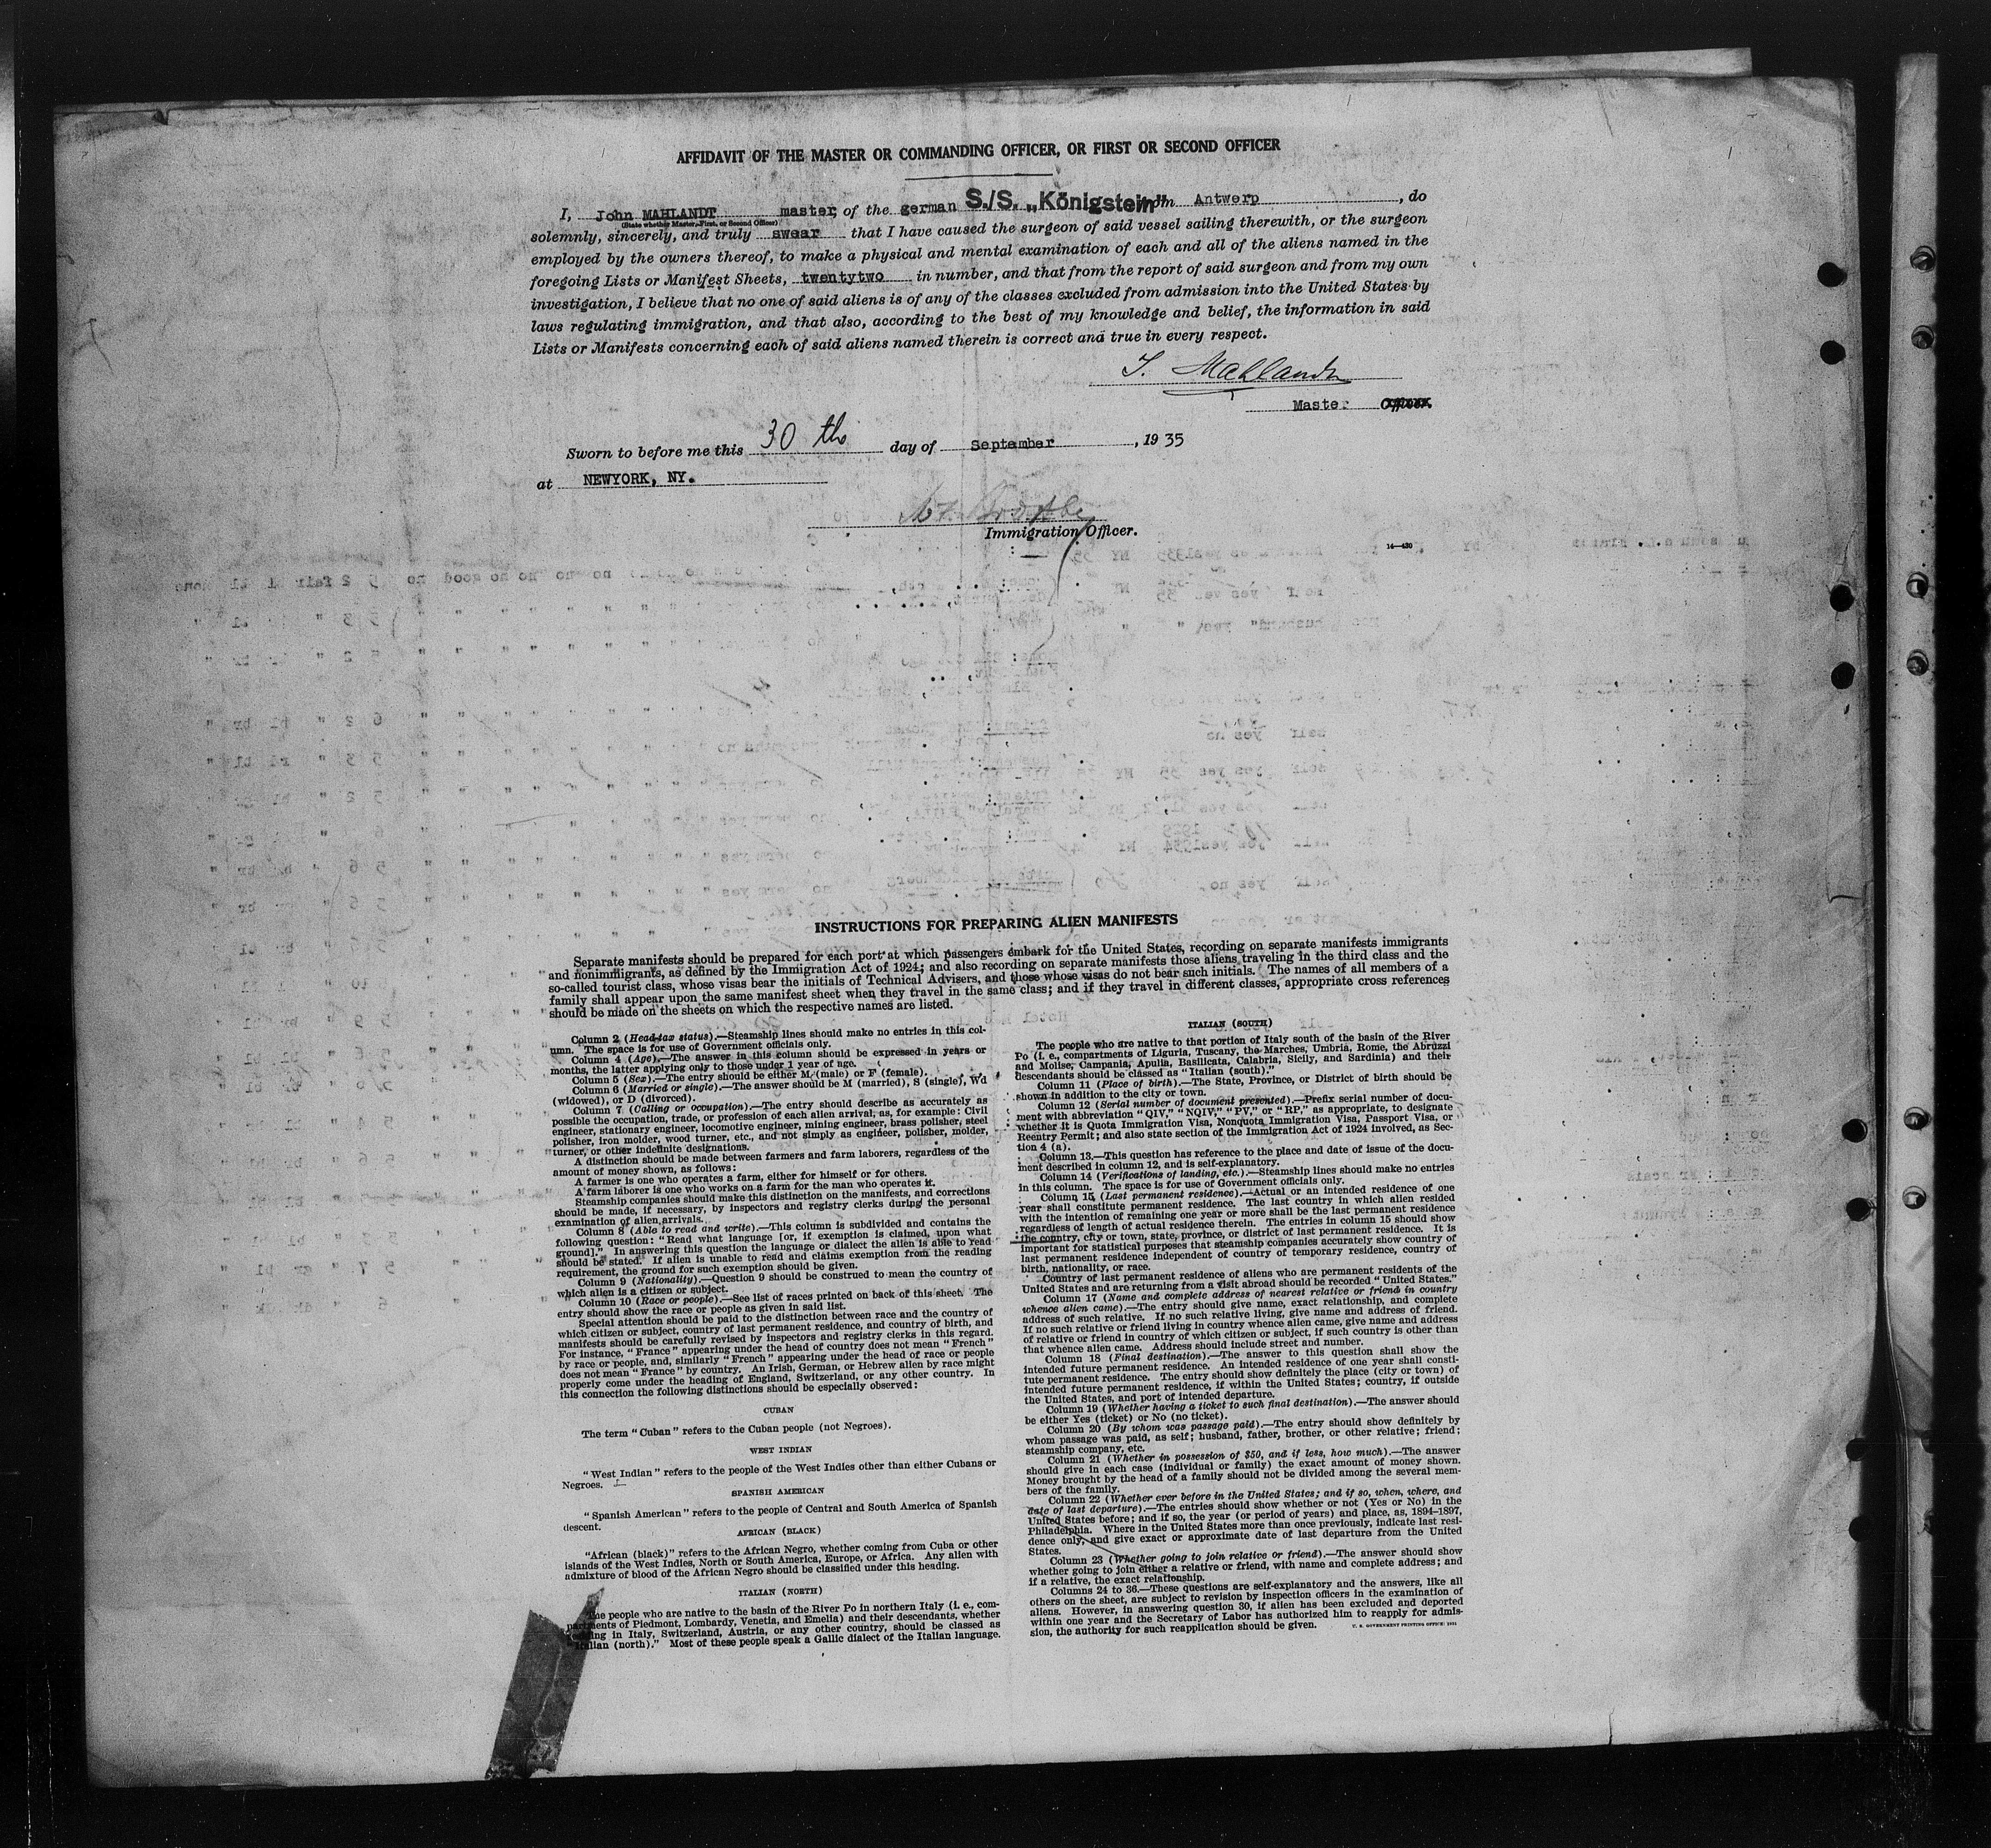 AFFIDAVIT OF THE MASTER OR COMMANDING OFFICER, OR FIRST OR SECOND OFFICER
I, John MAHLANDT master, of the german S./S. „Königstein" in Antwerp, do
(State whether Master, First, or Second Officer)
solemnly, sincerely, and truly swear that I have caused the surgeon of said vessel sailing therewith, or the surgeon
employed by the owners thereof, to make a physical and mental examination of each and all of the aliens named in the
foregoing Lists or Manifest Sheets, twentytwo in number, and that from the report of said surgeon and from my own
investigation, I believe that no one of said aliens is of any of the classes excluded from admission into the United States by
laws regulating immigration, and that also, according to the best of my knowledge and belief, the information in said
Lists or Manifests concerning each of said aliens named therein is correct and true in every respect.
Mahlandt
Master Officer.
Sworn to before me this 30 th day of September, 1935
at NEWYORK, NY.
Immigration Officer.
14—430
INSTRUCTIONS FOR PREPARING ALIEN MANIFESTS
Separate manifests should be prepared for each port at which passengers embark for the United States, recording on separate manifests immigrants
and nonimmigrants, as defined by the Immigration Act of 1924; and also recording on separate manifests those aliens traveling in the third class and the
so-called tourist class, whose visas bear the initials of Technical Advisers, and those whose visas do not bear such initials. The names of all members of a
family shall appear upon the same manifest sheet when they travel in the same class; and if they travel in different classes, appropriate cross references
should be made on the sheets on which the respective names are listed.
Column 2 (Head-tax status).—Steamship lines should make no entries in this col-
umn. The space is for use of Government officials only.
Column 4 (Age).—The answer in this column should be expressed in years or
months, the latter applying only to those under 1 year of age.
Column 5 (Sex).—The entry should be either M (male) or F (female).
Column 6 (Married or single).—The answer should be M (married), S (single), Wd
(widowed), or D (divorced).
Column 7 (Calling or occupation).—The entry should describe as accurately as
possible the occupation, trade, or profession of each alien arrival, as, for example: Civil
engineer, stationary engineer, locomotive engineer, mining engineer, brass polisher, steel
polisher, iron molder, wood turner, etc., and not simply as engineer, polisher, molder,
turner, or other indefinite designations.
A distinction should be made between farmers and farm laborers, regardless of the
amount of money shown, as follows:
A farmer is one who operates a farm, either for himself or for others.
A farm laborer is one who works on a farm for the man who operates it.
Steamship companies should make this distinction on the manifests, and corrections
should be made, if necessary, by inspectors and registry clerks during the personal
examination of alien arrivals.
Column 8 (Able to read and write).—This column is subdivided and contains the
following question: "Read what language [or, if exemption is claimed, upon what
ground]." In answering this question the language or dialect the alien is able to read
should be stated. If alien is unable to read and claims exemption from the reading
requirement, the ground for such exemption should be given.
Column 9 (Nationality).—Question 9 should be construed to mean the country of
which alien is a citizen or subject.
Column 10 (Race or people).—See list of races printed on back of this sheet. The
entry should show the race or people as given in said list.
Special attention should be paid to the distinction between race and the country of
which citizen or subject, country of last permanent residence, and country of birth, and
manifests should be carefully revised by inspectors and registry clerks in this regard.
For instance, "France" appearing under the head of country does not mean "French"
by race or people, and, similarly "French" appearing under the head of race or people
does not mean "France" by country. An Irish, German, or Hebrew alien by race might
properly come under the heading of England, Switzerland, or any other country. In
this connection the following distinctions should be especially observed:
CUBAN
The term "Cuban" refers to the Cuban people (not Negroes).
WEST INDIAN
"West Indian" refers to the people of the West Indies other than either Cubans or
Negroes.
SPANISH AMERICAN
"Spanish American" refers to the people of Central and South America of Spanish
descent.
AFRICAN (BLACK)
"African (black)" refers to the African Negro, whether coming from Cuba or other
islands of the West Indies, North or South America, Europe, or Africa. Any alien with
admixture of blood of the African Negro should be classified under this heading.
ITALIAN (NORTH)
The people who are native to the basin of the River Po in northern Italy (i. e., com-
partments of Piedmont, Lombardy, Venetia, and Emelia) and their descendants, whether
residing in Italy, Switzerland, Austria, or any other country, should be classed as
"Italian (north)." Most of these people speak a Gallic dialect of the Italian language.
ITALIAN (SOUTH)
The people who are native to that portion of Italy south of the basin of the River
Po (i. e., compartments of Liguria, Tuscany, the Marches, Umbria, Rome, the Abruzzi
and Molise, Campania, Apulia, Basilicata, Calabria, Sicily, and Sardinia) and their
descendants should be classed as "Italian (south)."
Column 11 (Place of birth).—The State, Province, or District of birth should be
shown in addition to the city or town.
Column 12 (Serial number of document presented).—Prefix serial number of docu-
ment with abbreviation "QIV," "NQIV," "PV," or "RP," as appropriate, to designate
whether it is Quota Immigration Visa, Nonquota Immigration Visa, Passport Visa, or
Reentry Permit; and also state section of the Immigration Act of 1924 involved, as Sec-
tion 4 (a).
Column 13.—This question has reference to the place and date of issue of the docu-
ment described in column 12, and is self-explanatory.
Column 14 (Verifications of landing, etc.).—Steamship lines should make no entries
in this column. The space is for use of Government officials only.
Column 15 (Last permanent residence).—Actual or an intended residence of one
year shall constitute permanent residence. The last country in which alien resided
with the intention of remaining one year or more shall be the last permanent residence
regardless of length of actual residence therein. The entries in column 15 should show
the country, city or town, state, province, or district of last permanent residence. It is
important for statistical purposes that steamship companies accurately show country of
last permanent residence independent of country of temporary residence, country of
birth, nationality, or race.
Country of last permanent residence of aliens who are permanent residents of the
United States and are returning from a visit abroad should be recorded "United States."
Column 17 (Name and complete address of nearest relative or friend in country
whence alien came).—The entry should give name, exact relationship, and complete
address of such relative. If no such relative living, give name and address of friend.
If no such relative or friend living in country whence alien came, give name and address
of relative or friend in country of which citizen or subject, if such country is other than
that whence alien came. Address should include street and number.
Column 18 (Final destination).—The answer to this question shall show the
intended future permanent residence. An intended residence of one year shall consti-
tute permanent residence. The entry should show definitely the place (city or town) of
intended future permanent residence, if within the United States; country, if outside
the United States, and port of intended departure.
Column 19 (Whether having a ticket to such final destination).—The answer should
be either Yes (ticket) or No (no ticket).
Column 20 (By whom was passage paid).—The entry should show definitely by
whom passage was paid, as self; husband, father, brother, or other relative; friend;
steamship company, etc.
Column 21 (Whether in possession of $50, and if less, how much).—The answer
should give in each case (individual or family) the exact amount of money shown.
Money brought by the head of a family should not be divided among the several mem-
bers of the family.
Column 22 (Whether ever before in the United States; and if so, when, where, and
date of last departure).—The entries should show whether or not (Yes or No) in the
United States before; and if so, the year (or period of years) and place, as, 1894–1897,
Philadelphia. Where in the United States more than once previously, indicate last resi-
dence only, and give exact or approximate date of last departure from the United
States.
Column 23 (Whether going to join relative or friend).—The answer should show
whether going to join either a relative or friend, with name and complete address; and
if a relative, the exact relationship.
Columns 24 to 36.—These questions are self-explanatory and the answers, like all
others on the sheet, are subject to revision by inspection officers in the examination of
aliens. However, in answering question 30, if alien has been excluded and deported
within one year and the Secretary of Labor has authorized him to reapply for admis-
sion, the authority for such reapplication should be given.
U. S. GOVERNMENT PRINTING OFFICE